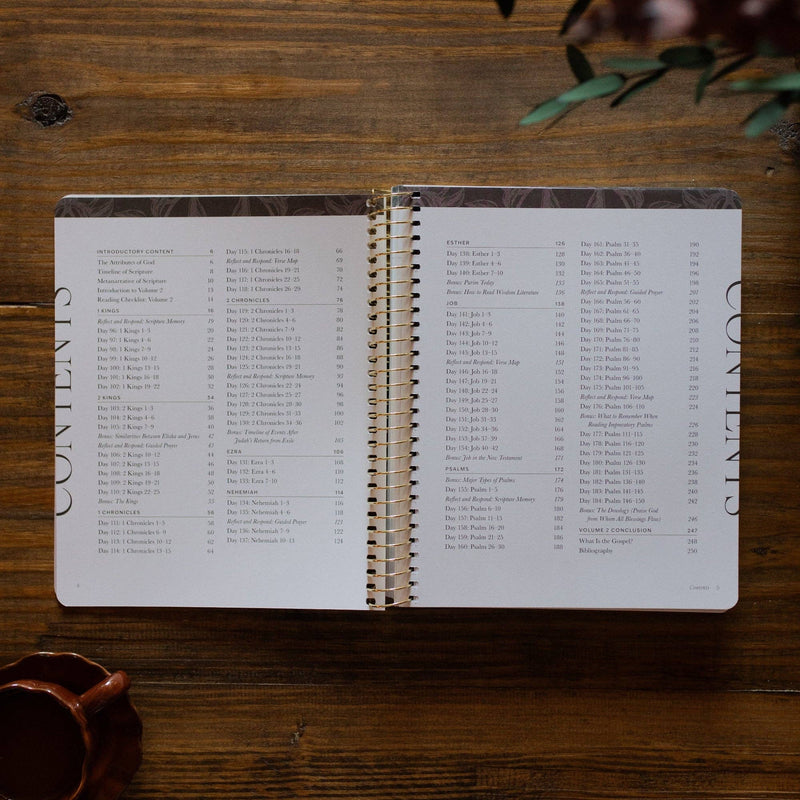 CONTENTS
INTRODUCTORY CONTENT 6
The Attributes of God 6
Timeline of Scripture 8
Metanarrative of Scripture 10
Introduction to Volume 2 13
Reading Checklist: Volume 2 14
1 KINGS 16
Reflect and Respond: Scripture Memory 19
Day 96: 1 Kings 1-3 20
Day 97: 1 Kings 4-6 22
Day 98: 1 Kings 7-9 24
Day 99: 1 Kings 10-12 26
Day 100: 1 Kings 13-15 28
Day 101: 1 Kings 16-18 30
Day 102: 1 Kings 19-22 32
2 KINGS 34
Day 103: 2 Kings 1-3 36
Day 104: 2 Kings 4-6 38
Day 105: 2 Kings 7-9 40
Bonus: Similarities Between Elisha and Jesus 42
Reflect and Respond: Guided Prayer 43
Day 106: 2 Kings 10-12 44
Day 107: 2 Kings 13-15 46
Day 108: 2 Kings 16-18 48
Day 109: 2 Kings 19-21 50
Day 110: 2 Kings 22-25 52
Bonus: The Kings 55
1 CHRONICLES 56
Day 111: 1 Chronicles 1-3 58
Day 112: 1 Chronicles 6-9 60
Day 113: 1 Chronicles 10-12 62
Day 114: 1 Chronicles 13-15 64
Day 115: 1 Chronicles 16-18 66
Reflect and Respond: Verse Map 69
Day 116: 1 Chronicles 19-21 70
Day 117: 1 Chronicles 22-25 72
Day 118: 1 Chronicles 26-29 74
2 CHRONICLES 76
Day 119: 2 Chronicles 1-3 78
Day 120: 2 Chronicles 4-6 80
Day 121: 2 Chronicles 7-9 82
Day 122: 2 Chronicles 10-12 84
Day 123: 2 Chronicles 13-15 86
Day 124: 2 Chronicles 16-18 88
Day 125: 2 Chronicles 19-21 90
Reflect and Respond: Scripture Memory 93
Day 126: 2 Chronicles 22-24 94
Day 127: 2 Chronicles 25-27 96
Day 128: 2 Chronicles 28-30 98
Day 129: 2 Chronicles 31-33 100
Day 130: 2 Chronicles 34-36 102
Bonus: Timeline of Events After
Judah's Return from Exile 105
EZRA 106
Day 131: Ezra 1-3 108
Day 132: Ezra 4-6 110
Day 133: Ezra 7-10 112
NEHEMIAH 114
Day 134: Nehemiah 1-3 116
Day 135: Nehemiah 4-6 118
Reflect and Respond: Guided Prayer 121
Day 136: Nehemiah 7-9 122
Day 137: Nehemiah 10-13 124
ESTHER 126
Day 138: Esther 1-3 128
Day 139: Esther 4-6 130
Day 140: Esther 7-10 132
Bonus: Purim Today 135
Bonus: How to Read Wisdom Literature 136
JOB 138
Day 141: Job 1-3 140
Day 142: Job 4-6 142
Day 143: Job 7-9 144
Day 144: Job 10-12 146
Day 145: Job 13-15 148
Reflect and Respond: Verse Map 151
Day 146: Job 16-18 152
Day 147: Job 19-21 154
Day 148: Job 22-24 156
Day 149: Job 25-27 158
Day 150: Job 28-30 160
Day 151: Job 31-33 162
Day 152: Job 34-36 164
Day 153: Job 37-39 166
Day 154: Job 40-42 168
Bonus: Job in the New Testament 171
PSALMS 172
Bonus: Major Types of Psalms 174
Day 155: Psalm 1-5 176
Reflect and Respond: Scripture Memory 179
Day 156: Psalm 6-10 180
Day 157: Psalm 11-15 182
Day 158: Psalm 16-20 184
Day 159: Psalm 21-25 186
Day 160: Psalm 26-30 188
Day 161: Psalm 31-35 190
Day 162: Psalm 36-40 192
Day 163: Psalm 41-45 194
Day 164: Psalm 46-50 196
Day 165: Psalm 51-55 198
Reflect and Respond: Guided Prayer 201
Day 166: Psalm 56-60 202
Day 167: Psalm 61-65 204
Day 168: Psalm 66-70 206
Day 169: Psalm 71-75 208
Day 170: Psalm 76-80 210
Day 171: Psalm 81-85 212
Day 172: Psalm 86-90 214
Day 173: Psalm 91-95 216
Day 174: Psalm 96-100 218
Day 175: Psalm 101-105 220
Reflect and Respond: Verse Map 223
Day 176: Psalm 106-110 224
Bonus: What to Remember When
Reading Imprecatory Psalms 226
Day 177: Psalm 111-115 228
Day 178: Psalm 116-120 230
Day 179: Psalm 121-125 232
Day 180: Psalm 126-130 234
Day 181: Psalm 131-135 236
Day 182: Psalm 136-140 238
Day 183: Psalm 141-145 240
Day 184: Psalm 146-150 242
Bonus: The Doxology (Praise God
from Whom All Blessings Flow) 246
VOLUME 2 CONCLUSION 247
What Is the Gospel? 248
Bibliography 250
CONTENTS
4
Contents 5